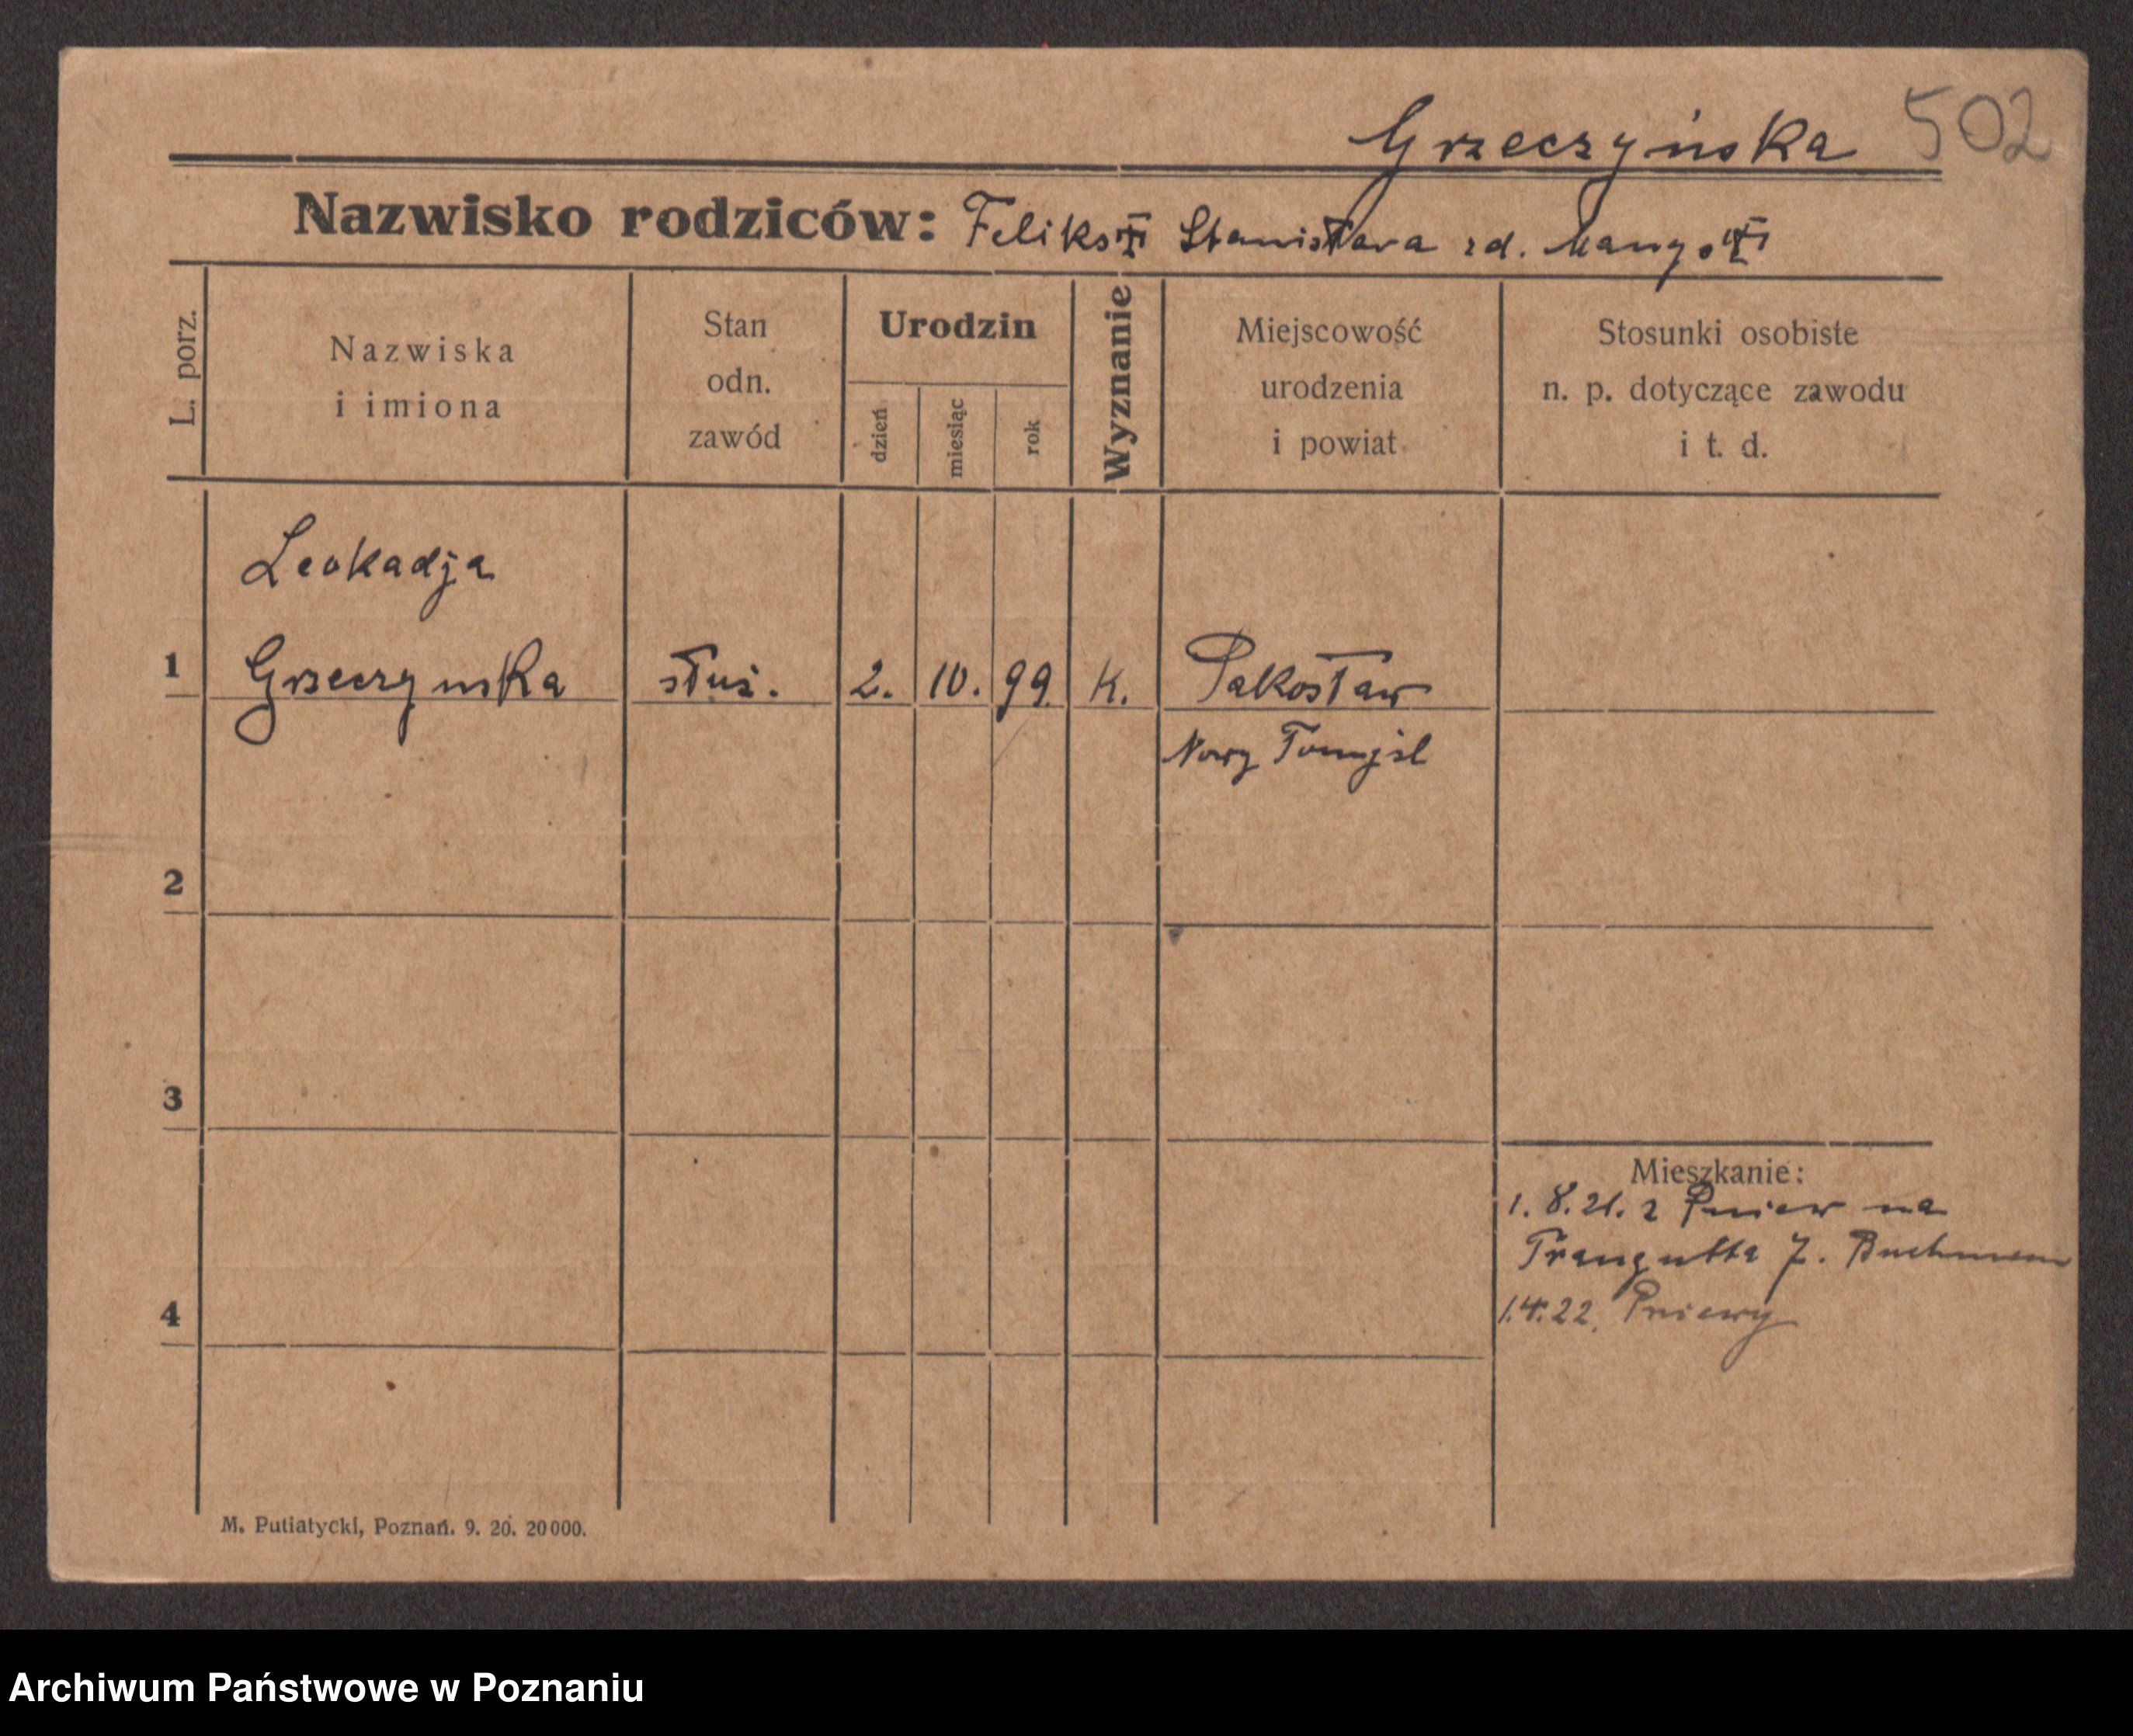 Grzeczyńska 502
Nazwisko rodziców: Feliks Stanisława zd.
L. porz.
Nazwiska
i imiona
Stan
odn.
zawód
Urodzin
dzień
miesiąc
rok
Wyznanie
Miejscowość
urodzenia
i powiat
Stosunki osobiste
n. p. dotyczące zawodu
i t. d.
Leokadja
1 Grzeczynska służ. 2. 10. 99. K. Pakosław
Nowy Tomyśl
2
3
4
Mieszkanie:
1. 8. 21. z Pniew na
Traugutta 7.
1.4.22. Pniewy
M. Putiatycki, Poznań. 9. 20. 20000.
Archiwum Państwowe w Poznaniu